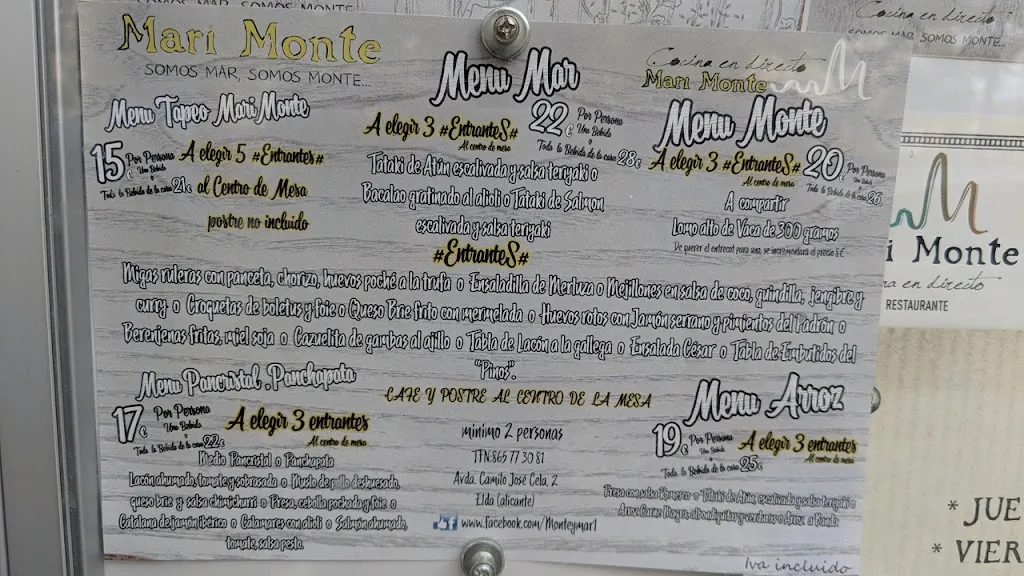 MAR, SOMOS MONTE
Mari Monte
SOMOS MAR, SOMOS MONTE...
Menu Tapeo Mari Monte
15€ Por Persona
Una Bebida
Toda la Bebida de la casa 21€
A elegir 5 #Entrantes#
al Centro de Mesa
postre no incluido
Menu Mar
A elegir 3 #EntranteS#
Al centro de mesa
22€ Por Persona
Una Bebida
Toda la Bebida de la casa 28€
Tataki de Atún escalivada y salsa teriyaki o
Bacalao gratinado al alioli o Tataki de Salmon
escalivada y salsa teriyaki
Cocina en directo
Mari Monte
Menu Monte
A elegir 3 #EntranteS#
Al centro de mesa
20€ Por Persona
Una Bebida
Toda la Bebida de la casa
A compartir
Lomo alto de Vaca de 300 gramos
De querer el entrecot para uno, se incrementará el precio 5 €
#EntranteS#
Migas ruleras con panceta, chorizo, huevos poché a la trufa o Ensaladilla de Merluza o Mejillones en salsa de coco, guindilla, jengibre y
curry o Croquetas de boletus y foie o Queso Brie frito con mermelada o Huevos rotos con Jamón serrano y pimientos del Padrón o
Berenjenas fritas, miel soja o Cazuelita de gambas al ajillo o Tabla de Lacón a la gallega o Ensalada César o Tabla de Embutidos del
"Pinos".
Menu Pancristal, Panchapata
17€ Por Persona
Una Bebida
Toda la Bebida de la casa 22€
A elegir 3 entrantes
Al centro de mesa
Medio Pancristal o Panchapata
Lacón ahumado, tomate y sobrasada o Muslo de pollo deshuesado,
queso brie y salsa chimichurri o Presa, cebolla pochada y foie o
Catalana de jamón ibérico o Calamares con alioli o Salmón ahumado,
tomate, salsa pesto.
CAFE Y POSTRE AL CENTRO DE LA MESA
minimo 2 personas
TFN:865 77 30 81
Avda. Camilo José Cela, 2
Elda (alicante)
www.facebook.com/Monteymar1
Menu Arroz
19€ Por Persona
Una Bebida
Toda la Bebida de la casa 25€
A elegir 3 entrantes
Al centro de mesa
Presa con salsa Romesco o Tataki de Atún, escalivada y salsa teriyaki o
Arroz Carne Magra, albondiguitas y verduras o Arroz a Banda
Iva incluido
Cocina en directo
MAR, SOMOS MONTE...
i Monte
na en directo
RESTAURANTE
* JUE
* VIER